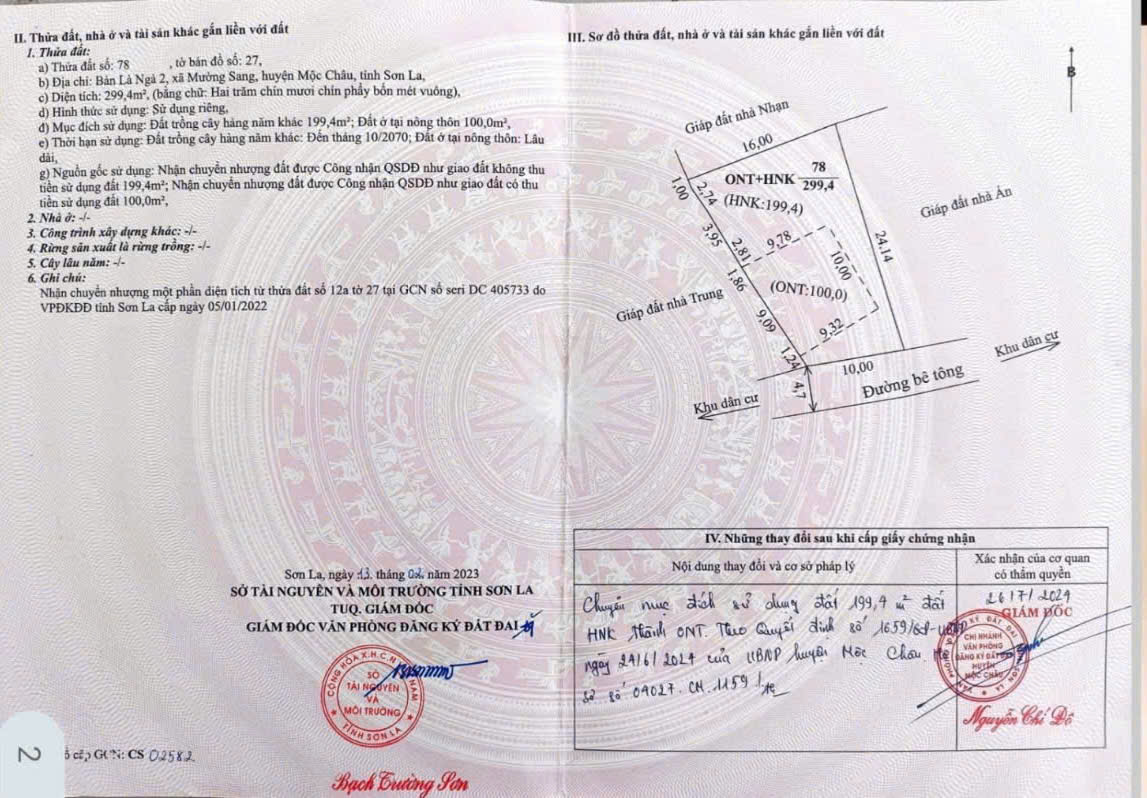 II. Thửa đất, nhà ở và tài sản khác gắn liền với đất
1. Thửa đất:
a) Thửa đất số: 78 , tờ bản đồ số: 27,
b) Địa chỉ: Bản Là Ngà 2, xã Mường Sang, huyện Mộc Châu, tỉnh Sơn La,
c) Diện tích: 299,4m², (bằng chữ: Hai trăm chín mươi chín phẩy bốn mét vuông),
d) Hình thức sử dụng: Sử dụng riêng,
đ) Mục đích sử dụng: Đất trồng cây hàng năm khác 199,4m²; Đất ở tại nông thôn 100,0m²,
e) Thời hạn sử dụng: Đất trồng cây hàng năm khác: Đến tháng 10/2070; Đất ở tại nông thôn: Lâu
dài,
g) Nguồn gốc sử dụng: Nhận chuyển nhượng đất được Công nhận QSDĐ như giao đất không thu
tiền sử dụng đất 199,4m²; Nhận chuyển nhượng đất được Công nhận QSDĐ như giao đất có thu
tiền sử dụng đất 100,0m²,
2. Nhà ở: -/-
3. Công trình xây dựng khác: -/-
4. Rừng sản xuất là rừng trồng: -/-
5. Cây lâu năm: -/-
6. Ghi chú:
Nhận chuyển nhượng một phần diện tích từ thửa đất số 12a tờ 27 tại GCN số seri DC 405733 do
VPĐKĐĐ tỉnh Sơn La cấp ngày 05/01/2022
Sơn La, ngày 13. tháng 02. năm 2023
SỞ TÀI NGUYÊN VÀ MÔI TRƯỜNG TỈNH SƠN LA
TUQ. GIÁM ĐỐC
GIÁM ĐỐC VĂN PHÒNG ĐĂNG KÝ ĐẤT ĐAI
CỘNG HÒA X.H.C.N VIỆT NAM
SỞ
TÀI NGUYÊN
VÀ
MÔI TRƯỜNG
TỈNH SƠN LA
Bạch Trường Sơn
2
số cấp GCN: CS 02582
III. Sơ đồ thửa đất, nhà ở và tài sản khác gắn liền với đất
B
Giáp đất nhà Nhạn
16,00
78
ONT+HNK 299,4
(HNK:199,4)
1,00
2,74
3,95
2,81
9,78
10,00
24,14
Giáp đất nhà Ấn
1,86
(ONT:100,0)
Giáp đất nhà Trung
9,09
9,32
1,24
10,00
4,7
Khu dân cư
Đường bê tông
Khu dân cư
IV. Những thay đổi sau khi cấp giấy chứng nhận
Nội dung thay đổi và cơ sở pháp lý
Xác nhận của cơ quan
có thẩm quyền
Chuyển mục đích sử dụng đất 199,4 m² đất
HNK thành ONT. Theo Quyết định số 1659/QĐ-UBND
ngày 24/6/2024 của UBND huyện Mộc Châu. Hồ
sơ số 04027.CN.1159
26/7/2024
GIÁM ĐỐC
CHI NHÁNH
VĂN PHÒNG
ĐĂNG KÝ ĐẤT ĐAI
HUYỆN
MỘC CHÂU
Nguyễn Chí Đô